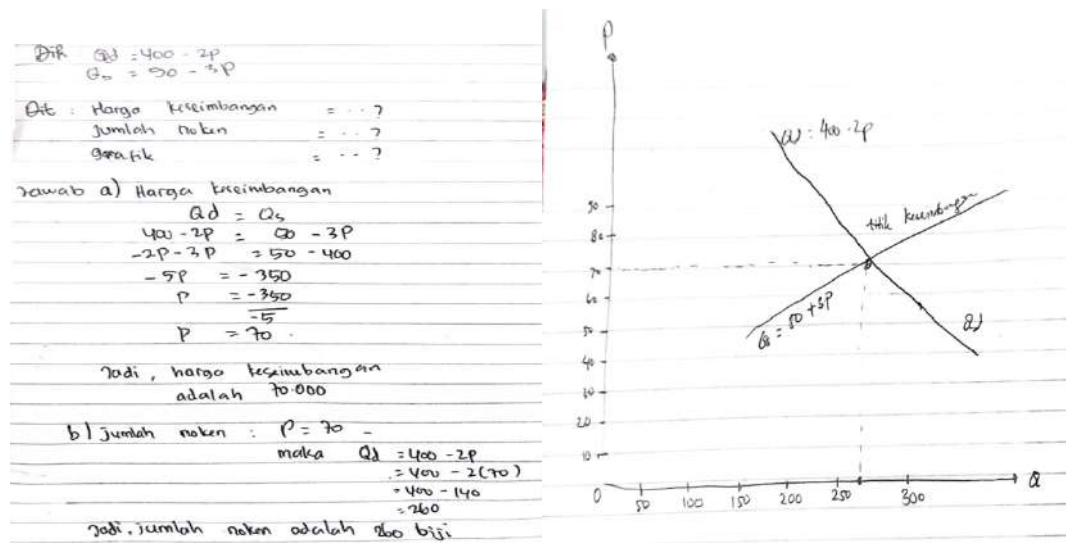 Dik Qd = 400 - 2P
Qs = 50 - 3P
Dit : Harga keseimbangan = ... ?
Jumlah noken = ... ?
grafik = ... ?
Jawab a) Harga keseimbangan
Qd = Qs
400 - 2P = 50 - 3P
-2P - 3P = 50 - 400
-5P = -350
P = -350
-5
P = 70.
Jadi, harga keseimbangan
adalah 70.000
b) Jumlah noken : P = 70
maka Qd = 400 - 2P
= 400 - 2(70)
= 400 - 140
= 260
Jadi, jumlah noken adalah 260 biji
P
Qd = 400 - 2P
titik keseimbangan
Qs = 50 + 3P
Qd
90
80
70
60
50
40
20
10
0 50 100 150 200 250 300 Q